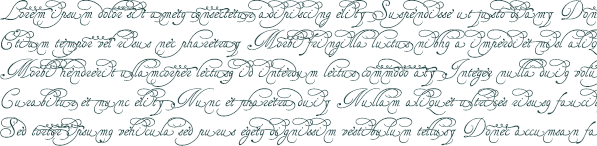 Lorem ipsum dolor sit amet, consectetur adipiscing elit. Suspendisse ut justo diam. Donec
Etiam tempor vel risus nec pharetra. Morbi fringilla luctus nibh, a imperdiet nisl
Morbi hendrerit ullamcorper lectus. Ut interdum lectus commodo a. Integer nulla dui, volu
Curabitur et nunc elit. Nunc et pharetra dui. Nullam aliquet ultricies risus, fauci
Sed tortor ipsum, vehicula sed purus eget, dignissim vestibulum tellus. Donec accumsan fa